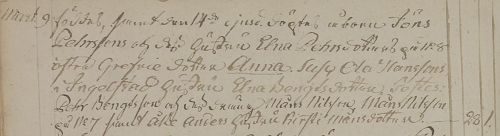 Mart. 9 föddes, samt den 14de ejusd. döptes åboen Jöns
Pehrssons och des Hustrus Elna Pehrsdotters på N:8
östra Grefvie dotter Anna. Susc. Ola Hanssons
i Ingelstad Hustru Elna Bengtsdotter, Testes:
Pehr Bengtsson och des Måns Nilsson, Måns Nilsson
på N:7 samt Åke Anders Hustru Kirsti Månsdotter. 28 1.